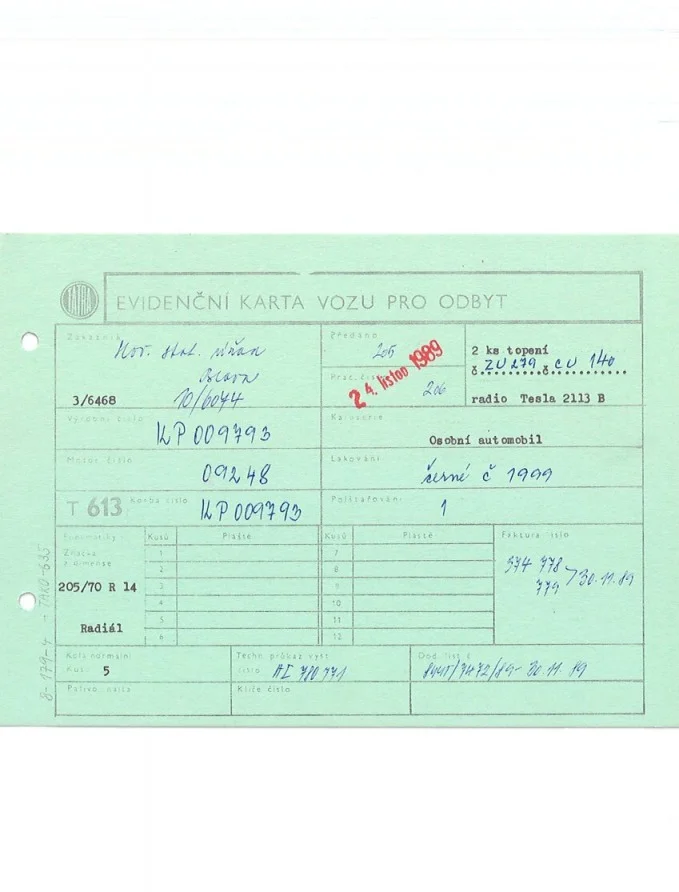 EVIDENČNÍ KARTA VOZU PRO ODBYT
Zákazník
3/6468
10/6074
Předáno
205
Prac. číslo
206
24. listop 1989
2 ks topení
č. ZU 279 č. CU 140
radio Tesla 2113 B
Výrobní číslo
KP 009793
Karoserie
Osobní automobil
Motor číslo
09248
Lakování
černé č 1999
T 613
Korba číslo
KP 009793
Polštářování
1
Pneumatiky
Kusů Pláště Kusů Pláště
Značka
a dimense
205/70 R 14
Radiál
1
2
3
4
5
6
7
8
9
10
11
12
Faktura číslo
374 778
779 > 30.11.89
Kola normální
Kusů 5
Techn. průkaz vyst.
číslo AI 780771
Dod. list č.
/7472/89 - 30.11.89
Palivo
Klíče číslo
8-179-4 - TAKO-635